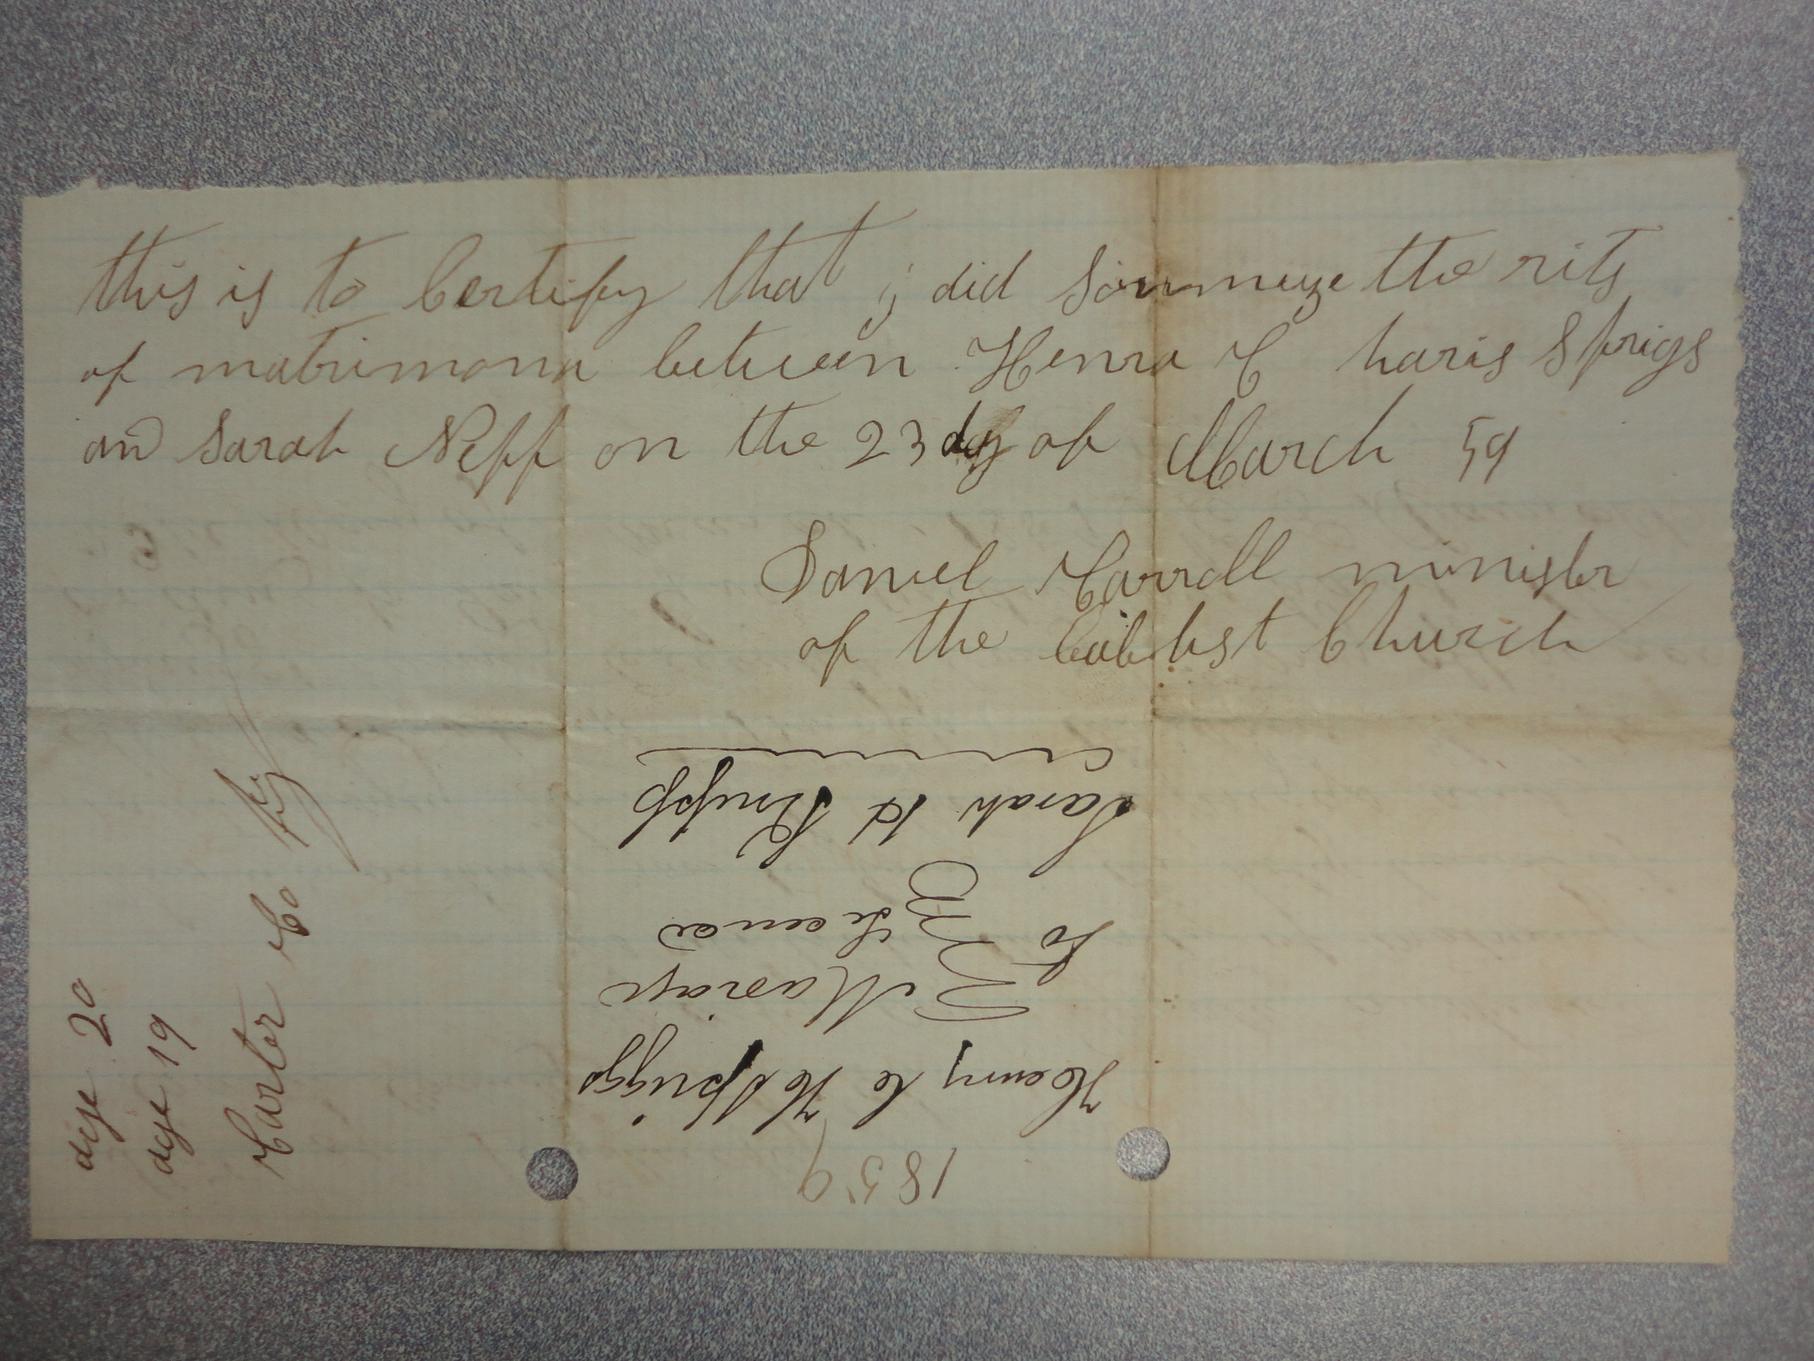 this is to Certify that i did Sounmize the rits
of matrimona between Henra C haris Sprigs
and Sarah Neff on the 23 day of March 59
Daniel Carroll minister
of the babtist Church
1859
Henry C H Spriggs
To Mariage
Licence
Sarah H
age 20
age 19
Carter Co Ky